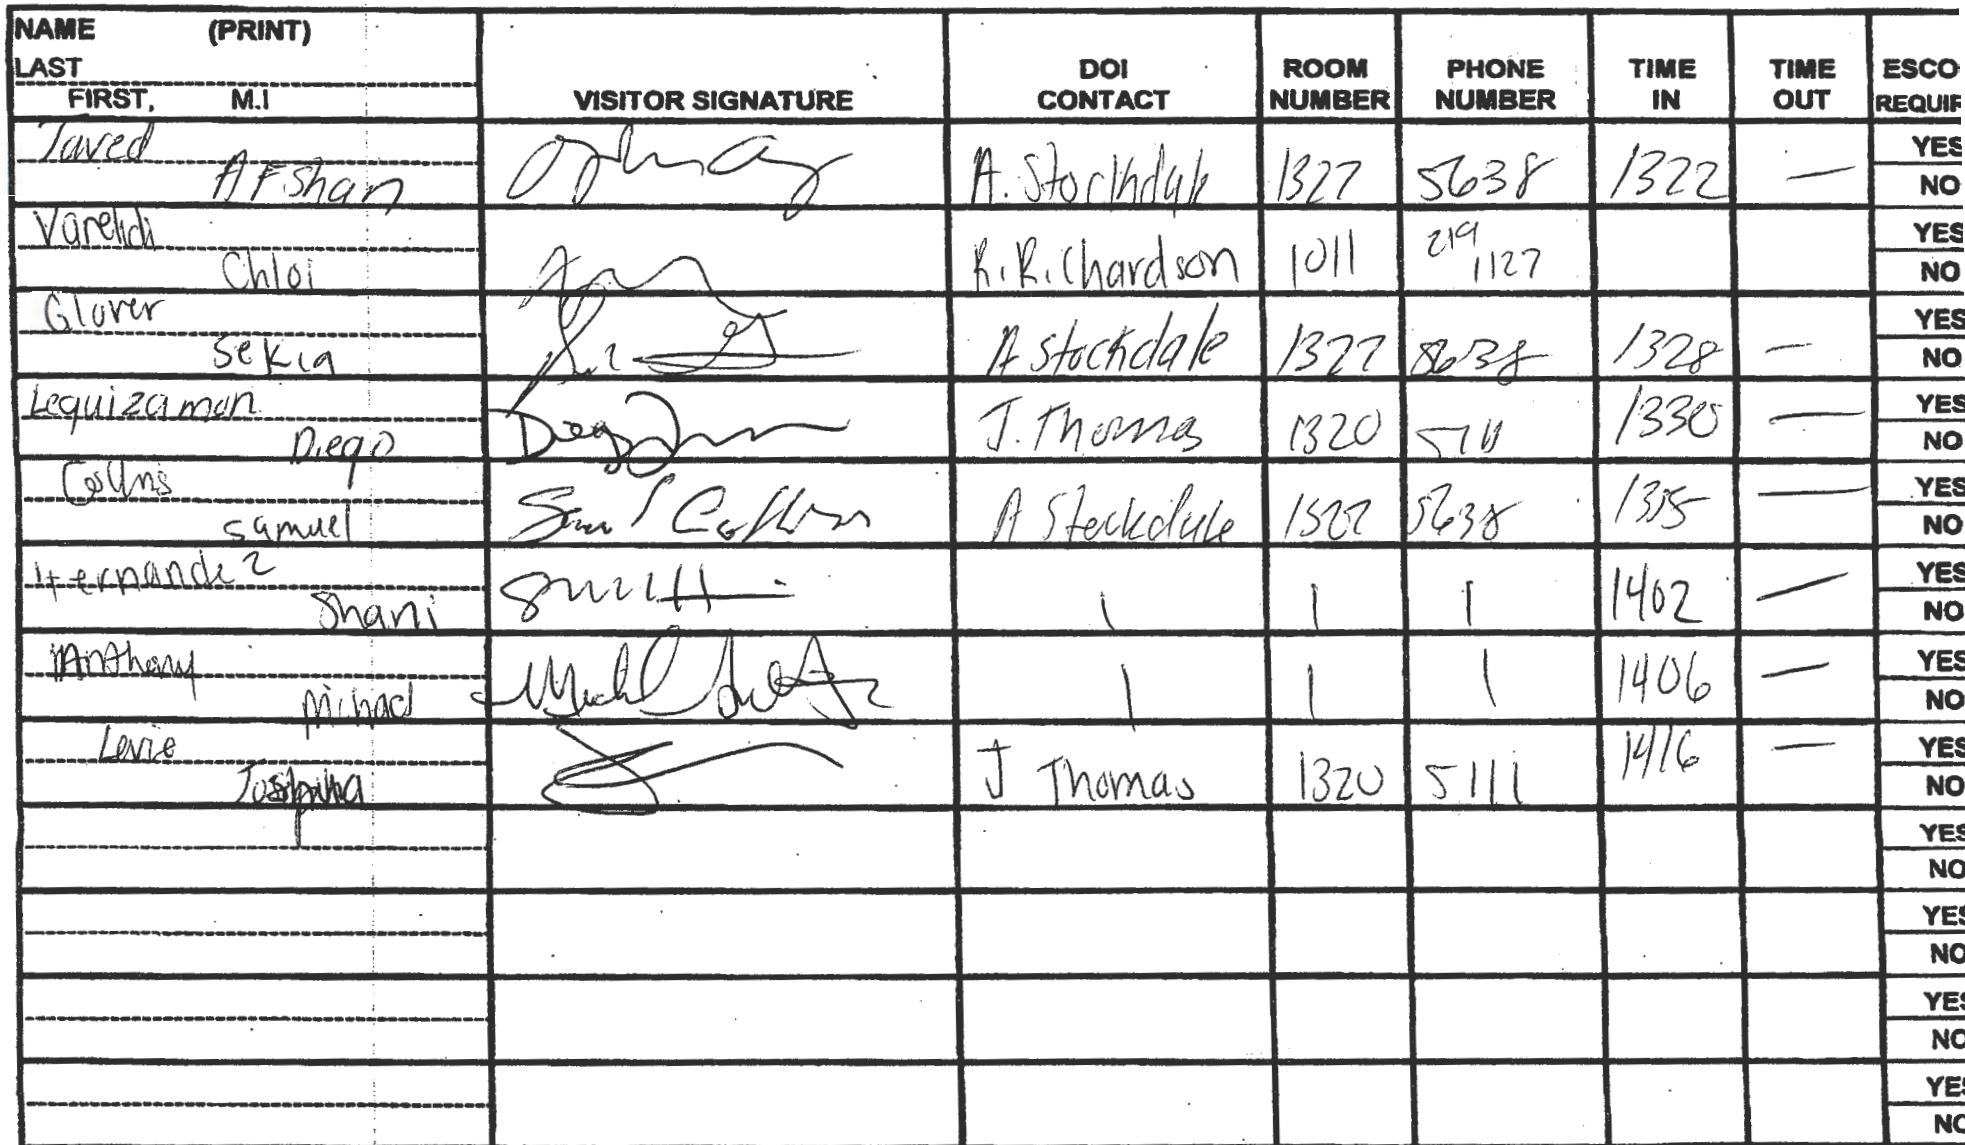 NAME (PRINT)
LAST
FIRST, M.I
VISITOR SIGNATURE
DOI CONTACT
ROOM NUMBER
PHONE NUMBER
TIME IN
TIME OUT
ESCO
REQUIF
Javed
Afshan A. Stockdale 1327 5638 1322 — YES NO
Varelidi
Chloi R. Richardson 1011 219 1127 YES NO
Glover
Sekia A Stockdale 1327 5638 1328 — YES NO
Lequizamon
Diego J. Thomas 1320 1330 — YES NO
Collins
Samuel A Stockdale 1327 5638 — YES NO
Hernandez
Shani | | | 1402 — YES NO
Anthony
Michael | | | 1406 — YES NO
Levie
J Thomas 1320 5111 1416 — YES NO
YES
NO
YES
NO
YES
NO
YES
NO